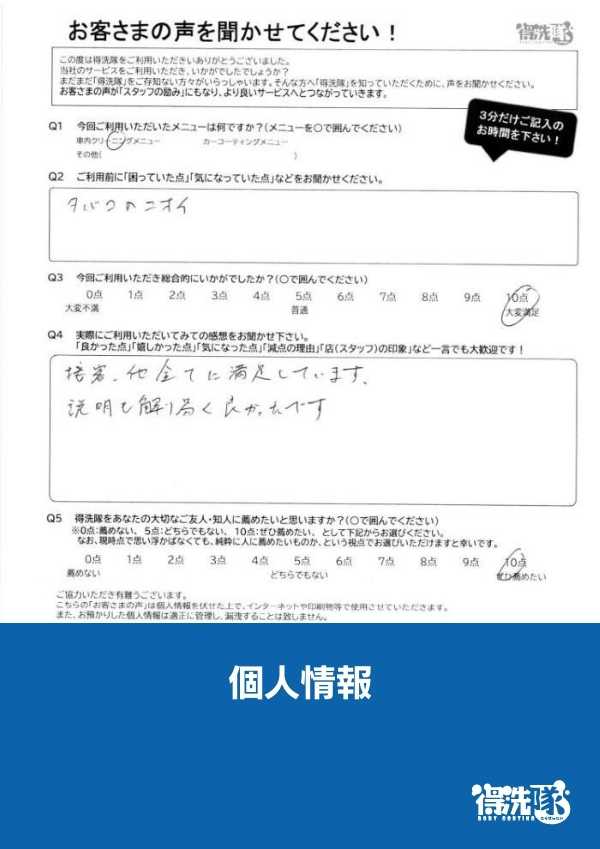 お客さまの声を聞かせてください！
得洗隊
この度は得洗隊をご利用いただきありがとうございました。
当社のサービスをご利用いただき、いかがでしたでしょうか？
まだまだ「得洗隊」をご存知ない方々がいらっしゃいます。そんな方へ「得洗隊」を知っていただくために、声をお聞かせください。
お客さまの声が「スタッフの励み」にもなり、より良いサービスへとつながっていきます。
3分だけご記入の
お時間を下さい！
Q1 今回ご利用いただいたメニューは何ですか？（メニューを〇で囲んでください）
車内クリーニングメニュー カーコーティングメニュー
その他( )
Q2 ご利用前に「困っていた点」「気になっていた点」などをお聞かせください。
タバコのニオイ
Q3 今回ご利用いただき総合的にいかがでしたか？（〇で囲んでください）
0点 1点 2点 3点 4点 5点 6点 7点 8点 9点 10点
大変不満 普通 大変満足
Q4 実際にご利用いただいてみての感想をお聞かせ下さい。
「良かった点」「嬉しかった点」「気になった点」「減点の理由」「店（スタッフ）の印象」など一言でも大歓迎です！
接客、他全てに満足しています、
説明も解り易く良かったです
Q5 得洗隊をあなたの大切なご友人・知人に薦めたいと思いますか？（〇で囲んでください）
※0点：薦めない、 5点：どちらでもない、 10点：ぜひ薦めたい、 として下記からお選びください。
なお、現時点で思い浮かばなくても、純粋に人に薦めたいものか、という視点でお選びいただけますと幸いです。
0点 1点 2点 3点 4点 5点 6点 7点 8点 9点 10点
薦めない どちらでもない ぜひ薦めたい
ご協力いただき有難うございます。
こちらの「お客さまの声」は個人情報を伏せた上で、インターネットや印刷物等で使用させていただきます。
また、お預かりした個人情報は適正に管理し、漏洩することは致しません。
個人情報
得洗隊
BODY COATING